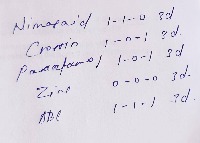 Nimopaid 1-1-0 3d
Cromin 1-0-1 3d.
Paracetamol 1-0-1 3d.
Zinc 0-0-0 3d.
ABC 1-1-1 3d.